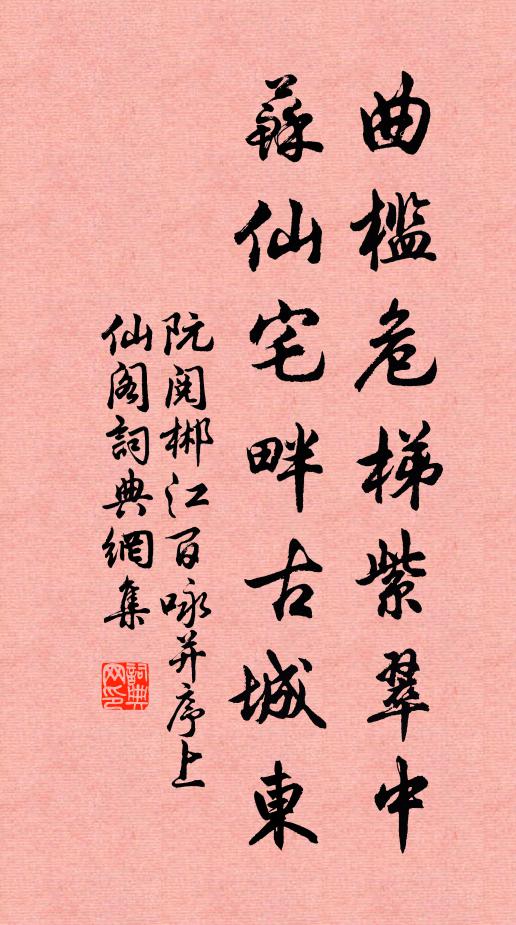 曲檻危梯紫翠中
蘇仙宅畔古城東
阮閱郴江百咏并序上
仙閣詞典網集
詞典網印